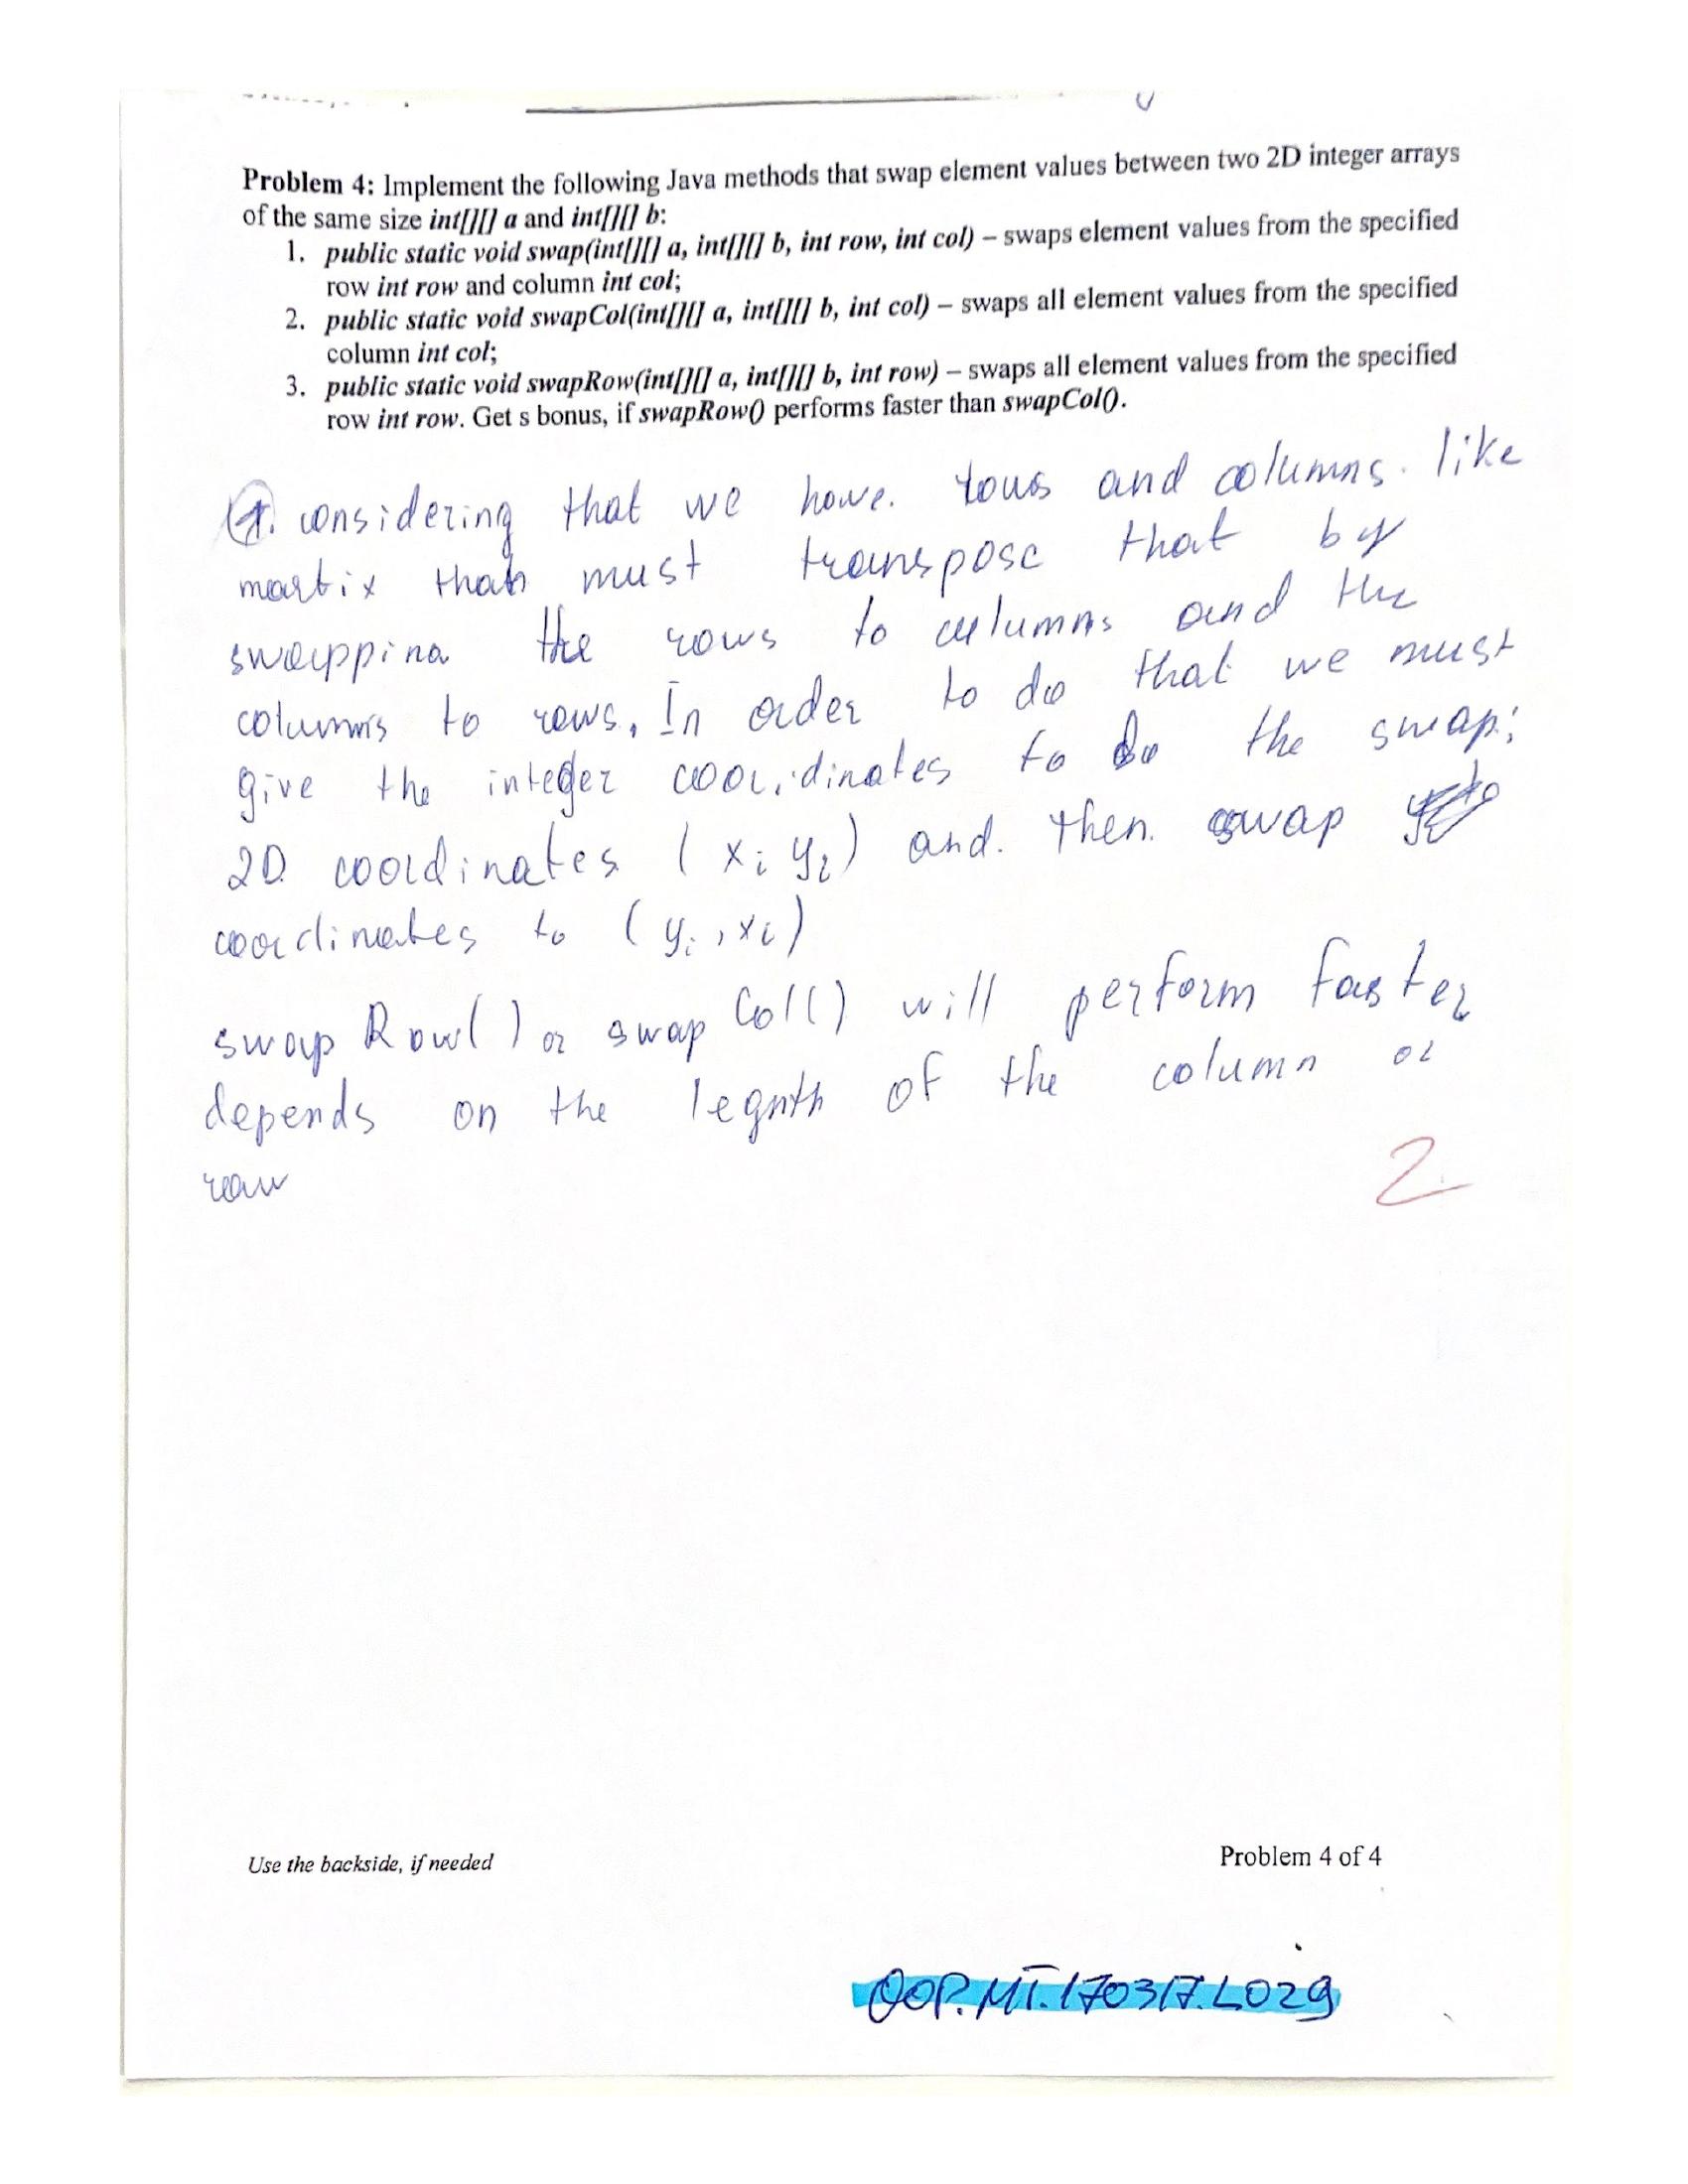 Problem 4: Implement the following Java methods that swap element values between two 2D integer arrays
of the same size int[][] a and int[][] b:
1. public static void swap(int[][] a, int[][] b, int row, int col) – swaps element values from the specified
row int row and column int col;
2. public static void swapCol(int[][] a, int[][] b, int col) – swaps all element values from the specified
column int col;
3. public static void swapRow(int[][] a, int[][] b, int row) – swaps all element values from the specified
row int row. Get s bonus, if swapRow() performs faster than swapCol().
1. considering that we have. rows and columns. like
martix than must transpose that by
swappina the rows to culumns and the
columns to rows. In order to do that we must
give the integer coordinates to do the swap;
2D coordinates (xi yi) and. then. swap
coordinates to (yi, xi)
swap Row() or swap Col() will perform faster
depends on the legnth of the column or
raw
2
Use the backside, if needed
Problem 4 of 4
OOP.MT.170317.L029